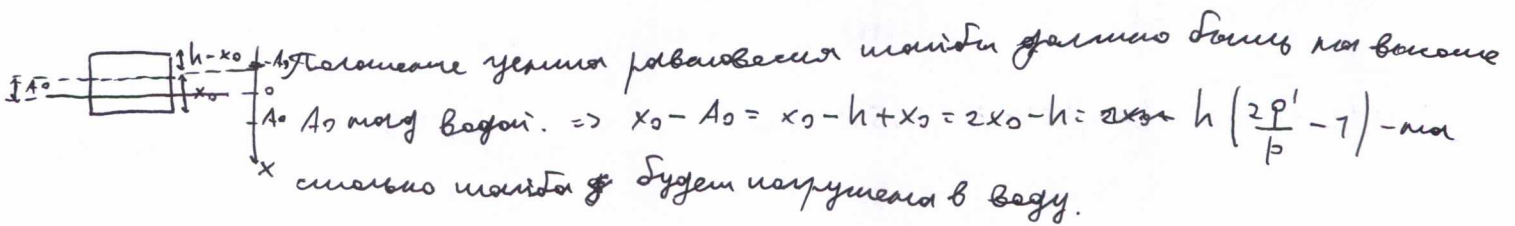 h-x₀ -A₀ Положение центра равновесия шайбы должно быть на высоте
A₀ x₀ 0
A₀ A₀ над водой. => x₀ - A₀ = x₀ - h + x₀ = 2x₀ - h = h (2ρ'/ρ - 1) - на
x столько шайба будет погружена в воду.